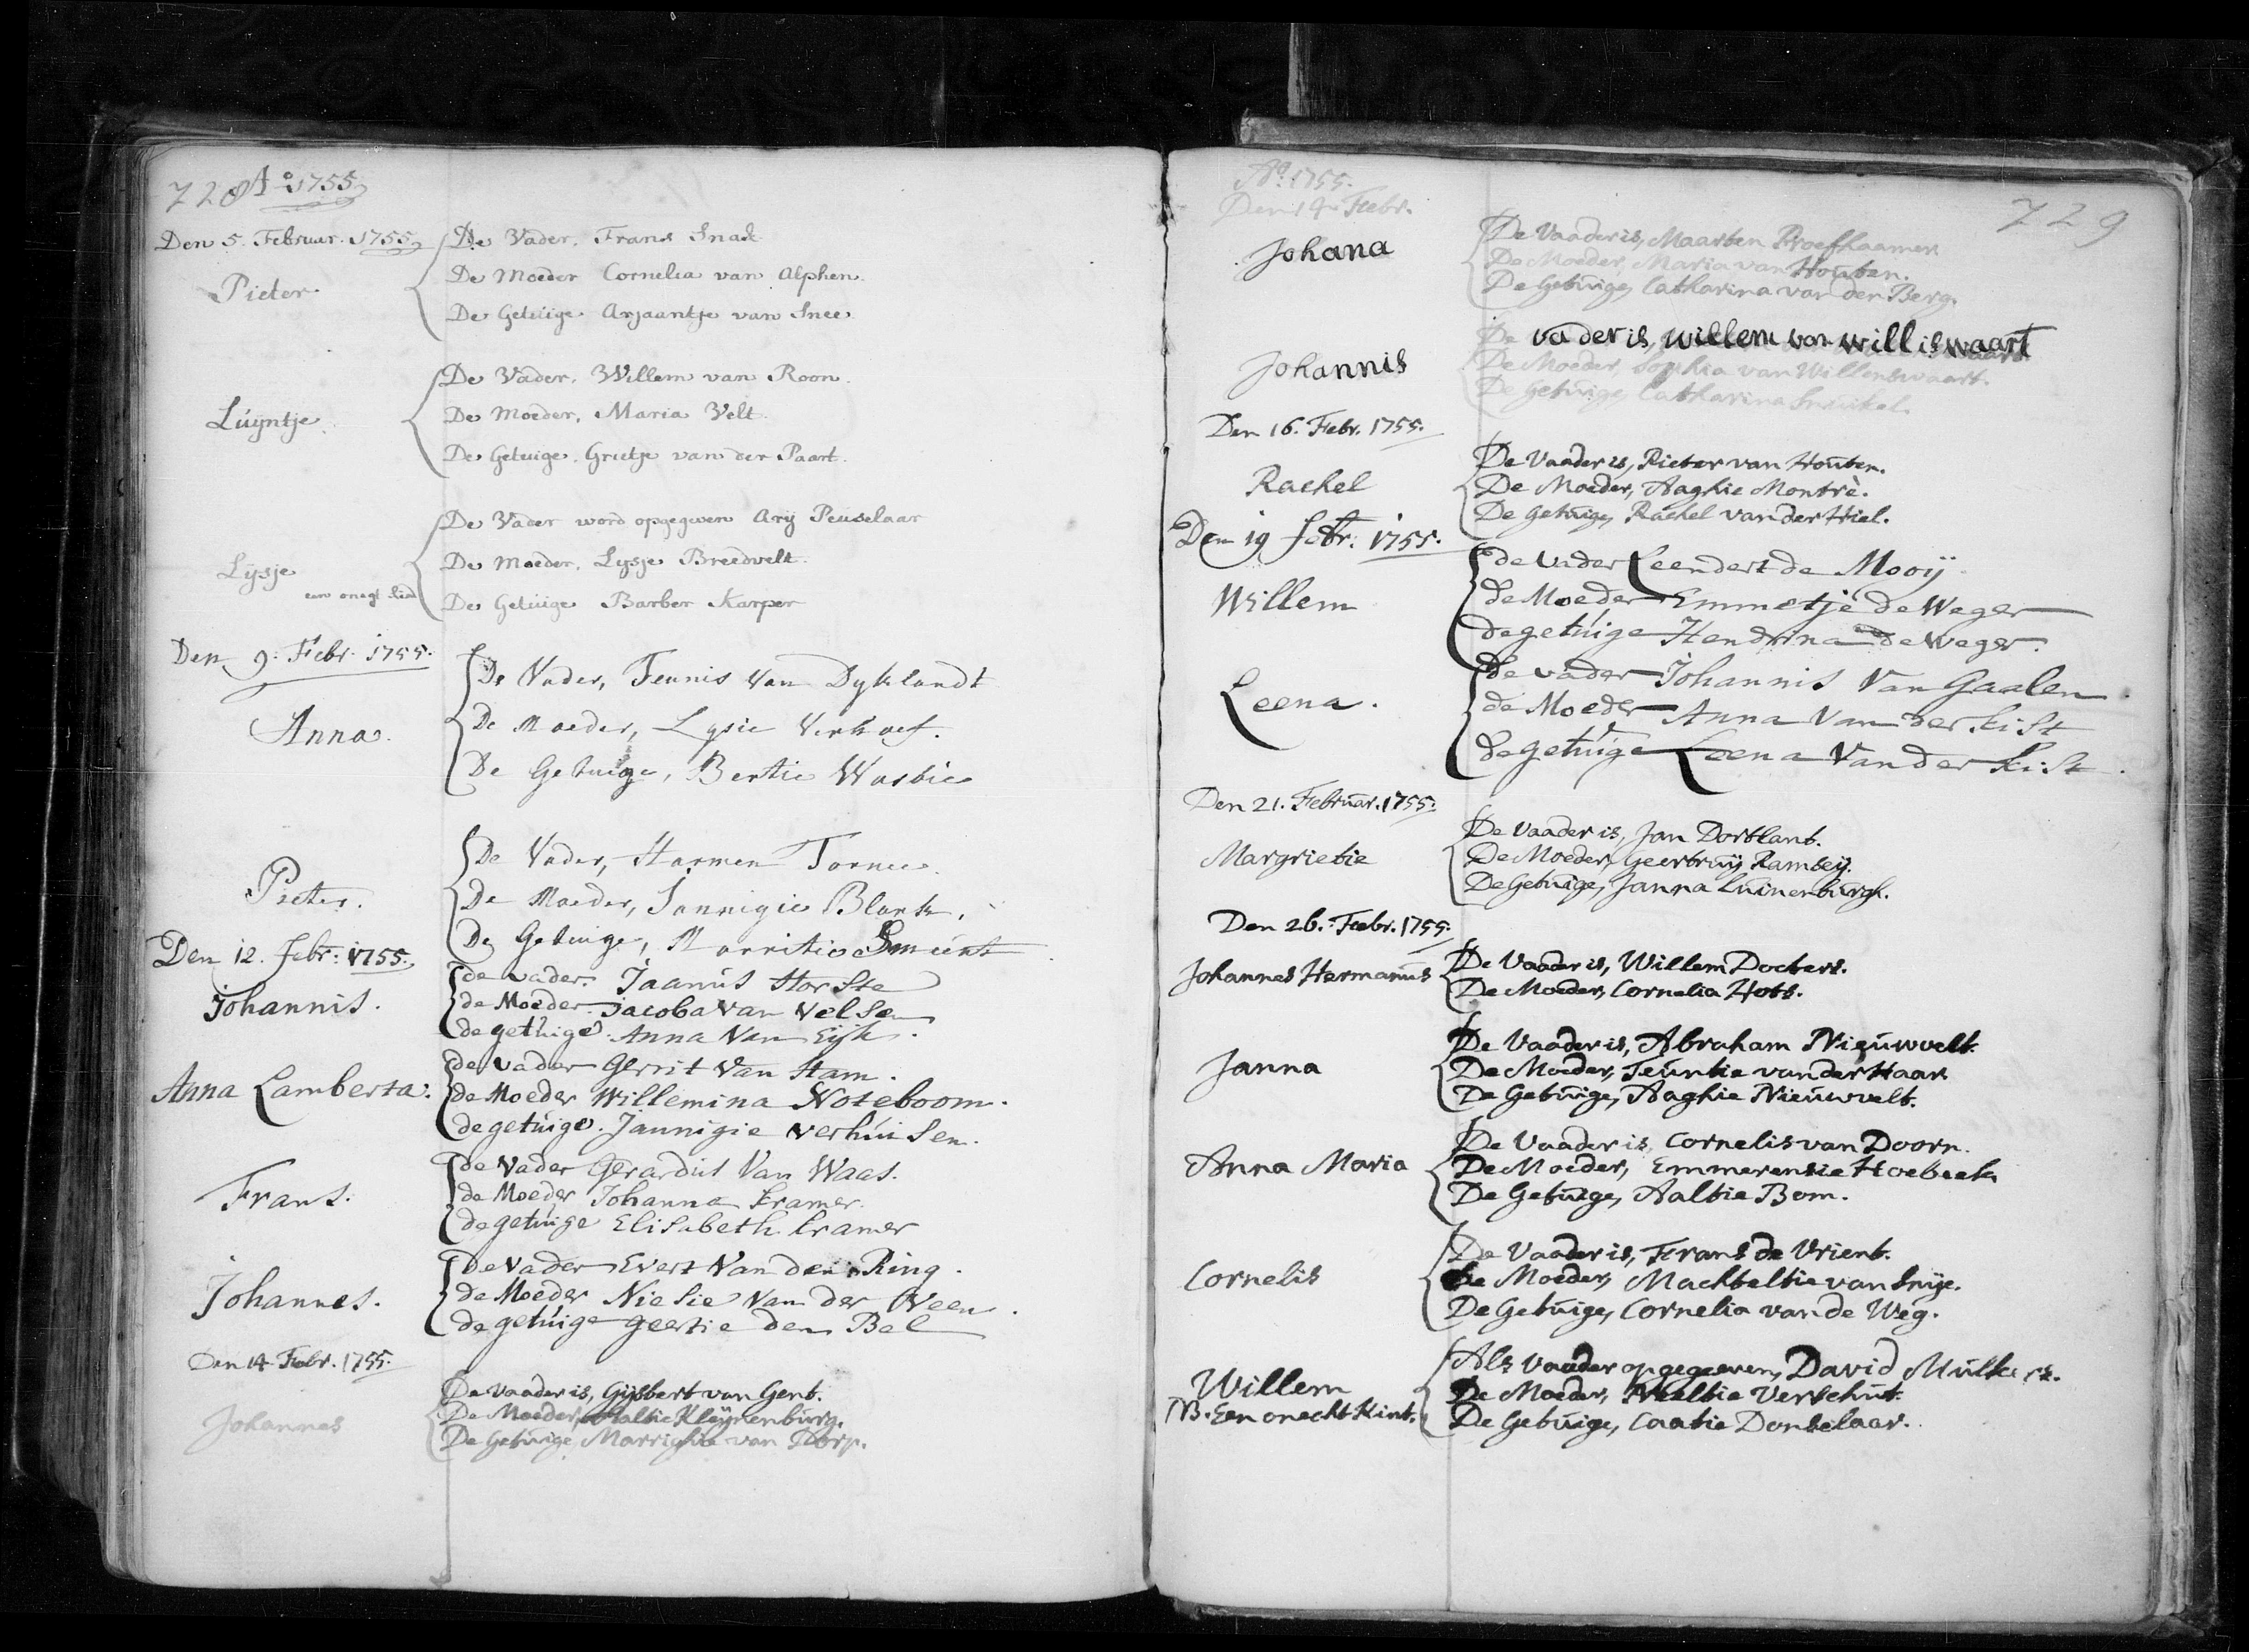 728 Aº 1755
Den 5. Februar. 1755
De Vader, Frans Snak
Pieter
De Moeder Cornelia van Alphen.
De Getuige Arjaantje van Snee
De Vader, Willem van Roon.
Luijntje
De Moeder, Maria Velt.
De Getuige, Grietje van der Paart.
De Vader word opgegeven Arij Peuselaar
Lijsje
De Moeder, Lysje Breedvelt.
een onegt kind
De Getuige Barber Karper
Den 9. Febr. 1755.
De Vader, Teunis van Dyklandt
Anna.
De Moeder, Lysie Verhoef.
De Getuige, Bertie Wasbie
De Vader, Harmen Tornee.
Pieter.
De Moeder, Jannigie Blank.
De Getuige, Marritie Smient
Den 12. Febr: 1755.
de vader. Jaanus Horste
Johannis.
de Moeder. Jacoba van Velsen
de getuige. Anna Van Eijk.
de vader Gerrit Van Ham.
Anna Lamberta.
de Moeder Willemina Noteboom.
de getuige. Jannigie verhuisen.
de Vader Gerardus Van Waas.
Frans.
de Moeder Johanna Kramer.
de getuige Elisabeth Kramer
de Vader Evert Van den Ring.
Johannes.
de Moeder Niesie Van der Veen.
de getuige geertie den Bel
Den 14. Febr. 1755.
De Vaader is, Gijsbert van Gent.
Johannes
De Moeder, Aaltie Kleijnenburg.
De Getuige, Marrighie van Dorp.
Aº. 1755.
729
Den 14. Febr.
De Vaader is, Maarten Proefhaamer
Johana
De Moeder, Maria van Houten.
De Getuige, Catharina van den Berg.
De vader is, willem van willis waart
Johannis
De Moeder, Sophia van Willenswaart.
De Getuige, Catharina
Den 16. Febr. 1755.
De Vaader is, Pieter van Houten.
Rachel
De Moeder, Aaghie Montrè.
De Getuige, Rachel van der Hiel.
Den 19 febr: 1755.
de vader Leendert de Mooij
Willem
de Moeder Emmetje de Weger
de getuige Hendrina de weger.
de vader Johannis Van Gaalen.
Leena.
de Moeder Anna Van der Kist
de getuige Leena Van der Kist.
Den 21. Februar. 1755.
De Vaader is, Jan Dortlant.
Margrietie
De Moeder, Geertruij Ramseij.
De Getuige, Janna Luinenburgh.
Den 26. Febr. 1755.
Johannes Hermanus
De Vaader is, Willem Dockers.
De Moeder, Cornelia Hots.
De Vaader is, Abraham Nieuwvelt.
Janna
De Moeder, Teuntie van der Haar.
De Getuige, Aaghie Nieuwvelt.
De Vaader is, Cornelis van Doorn.
Anna Maria
De Moeder, Emmerensie Hoebeek.
De Getuige, Aaltie Bom.
De Vaader is, Frans de Vrient.
Cornelis
De Moeder, Machteltie van Snije.
De Getuige, Cornelia van de Weg.
Als Vaader opgegeeven, David Mulkers.
Willem
De Moeder, Neeltie Verschut.
NB. Een onecht Kint.
De Getuige, Caatie Donselaar.